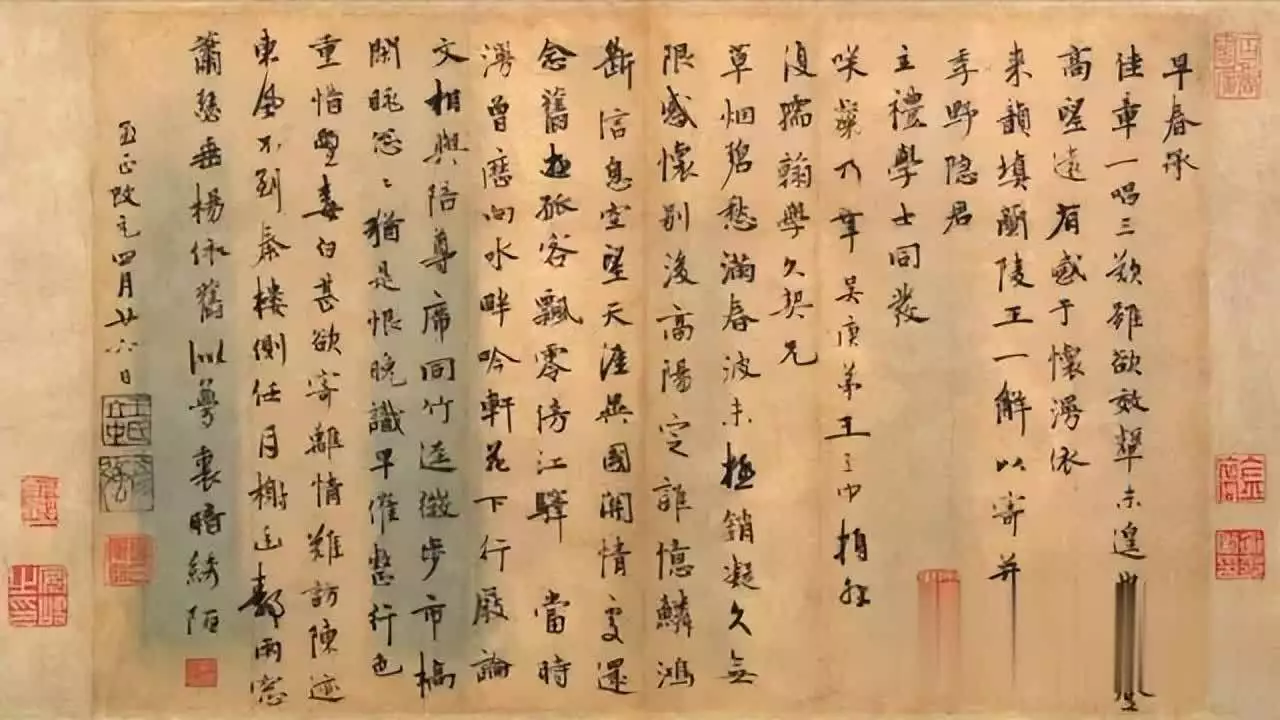 早春承
佳章一唱三歎雖欲效顰未遑
高望遠有感于懷漫依
来韻填蘭陵王一解以寄并
季野隐君
主禮學士同發
咲粲乃幸吳庚弟王立中頓拜
復孺翰學久契兄
草烟碧愁滿春波未極銷凝久无
限感懷别後高陽定誰憶鱗鴻
斷信息空望天涯異國閑情處還
念舊逰孤客飄零傍江驛當時
湧曾歷向水畔吟軒花下行殿論
文相與陪尊席同竹逕微步市橋
閑眺怱〻猶是恨晚識早催整行色
重惜鬓毒白甚欲寄離情難訪陳迹
東風不到秦樓側任月榭
雨窓
蕭瑟垂楊依舊似夢裏暗綺陌
至正改元四月廿六日
王氏